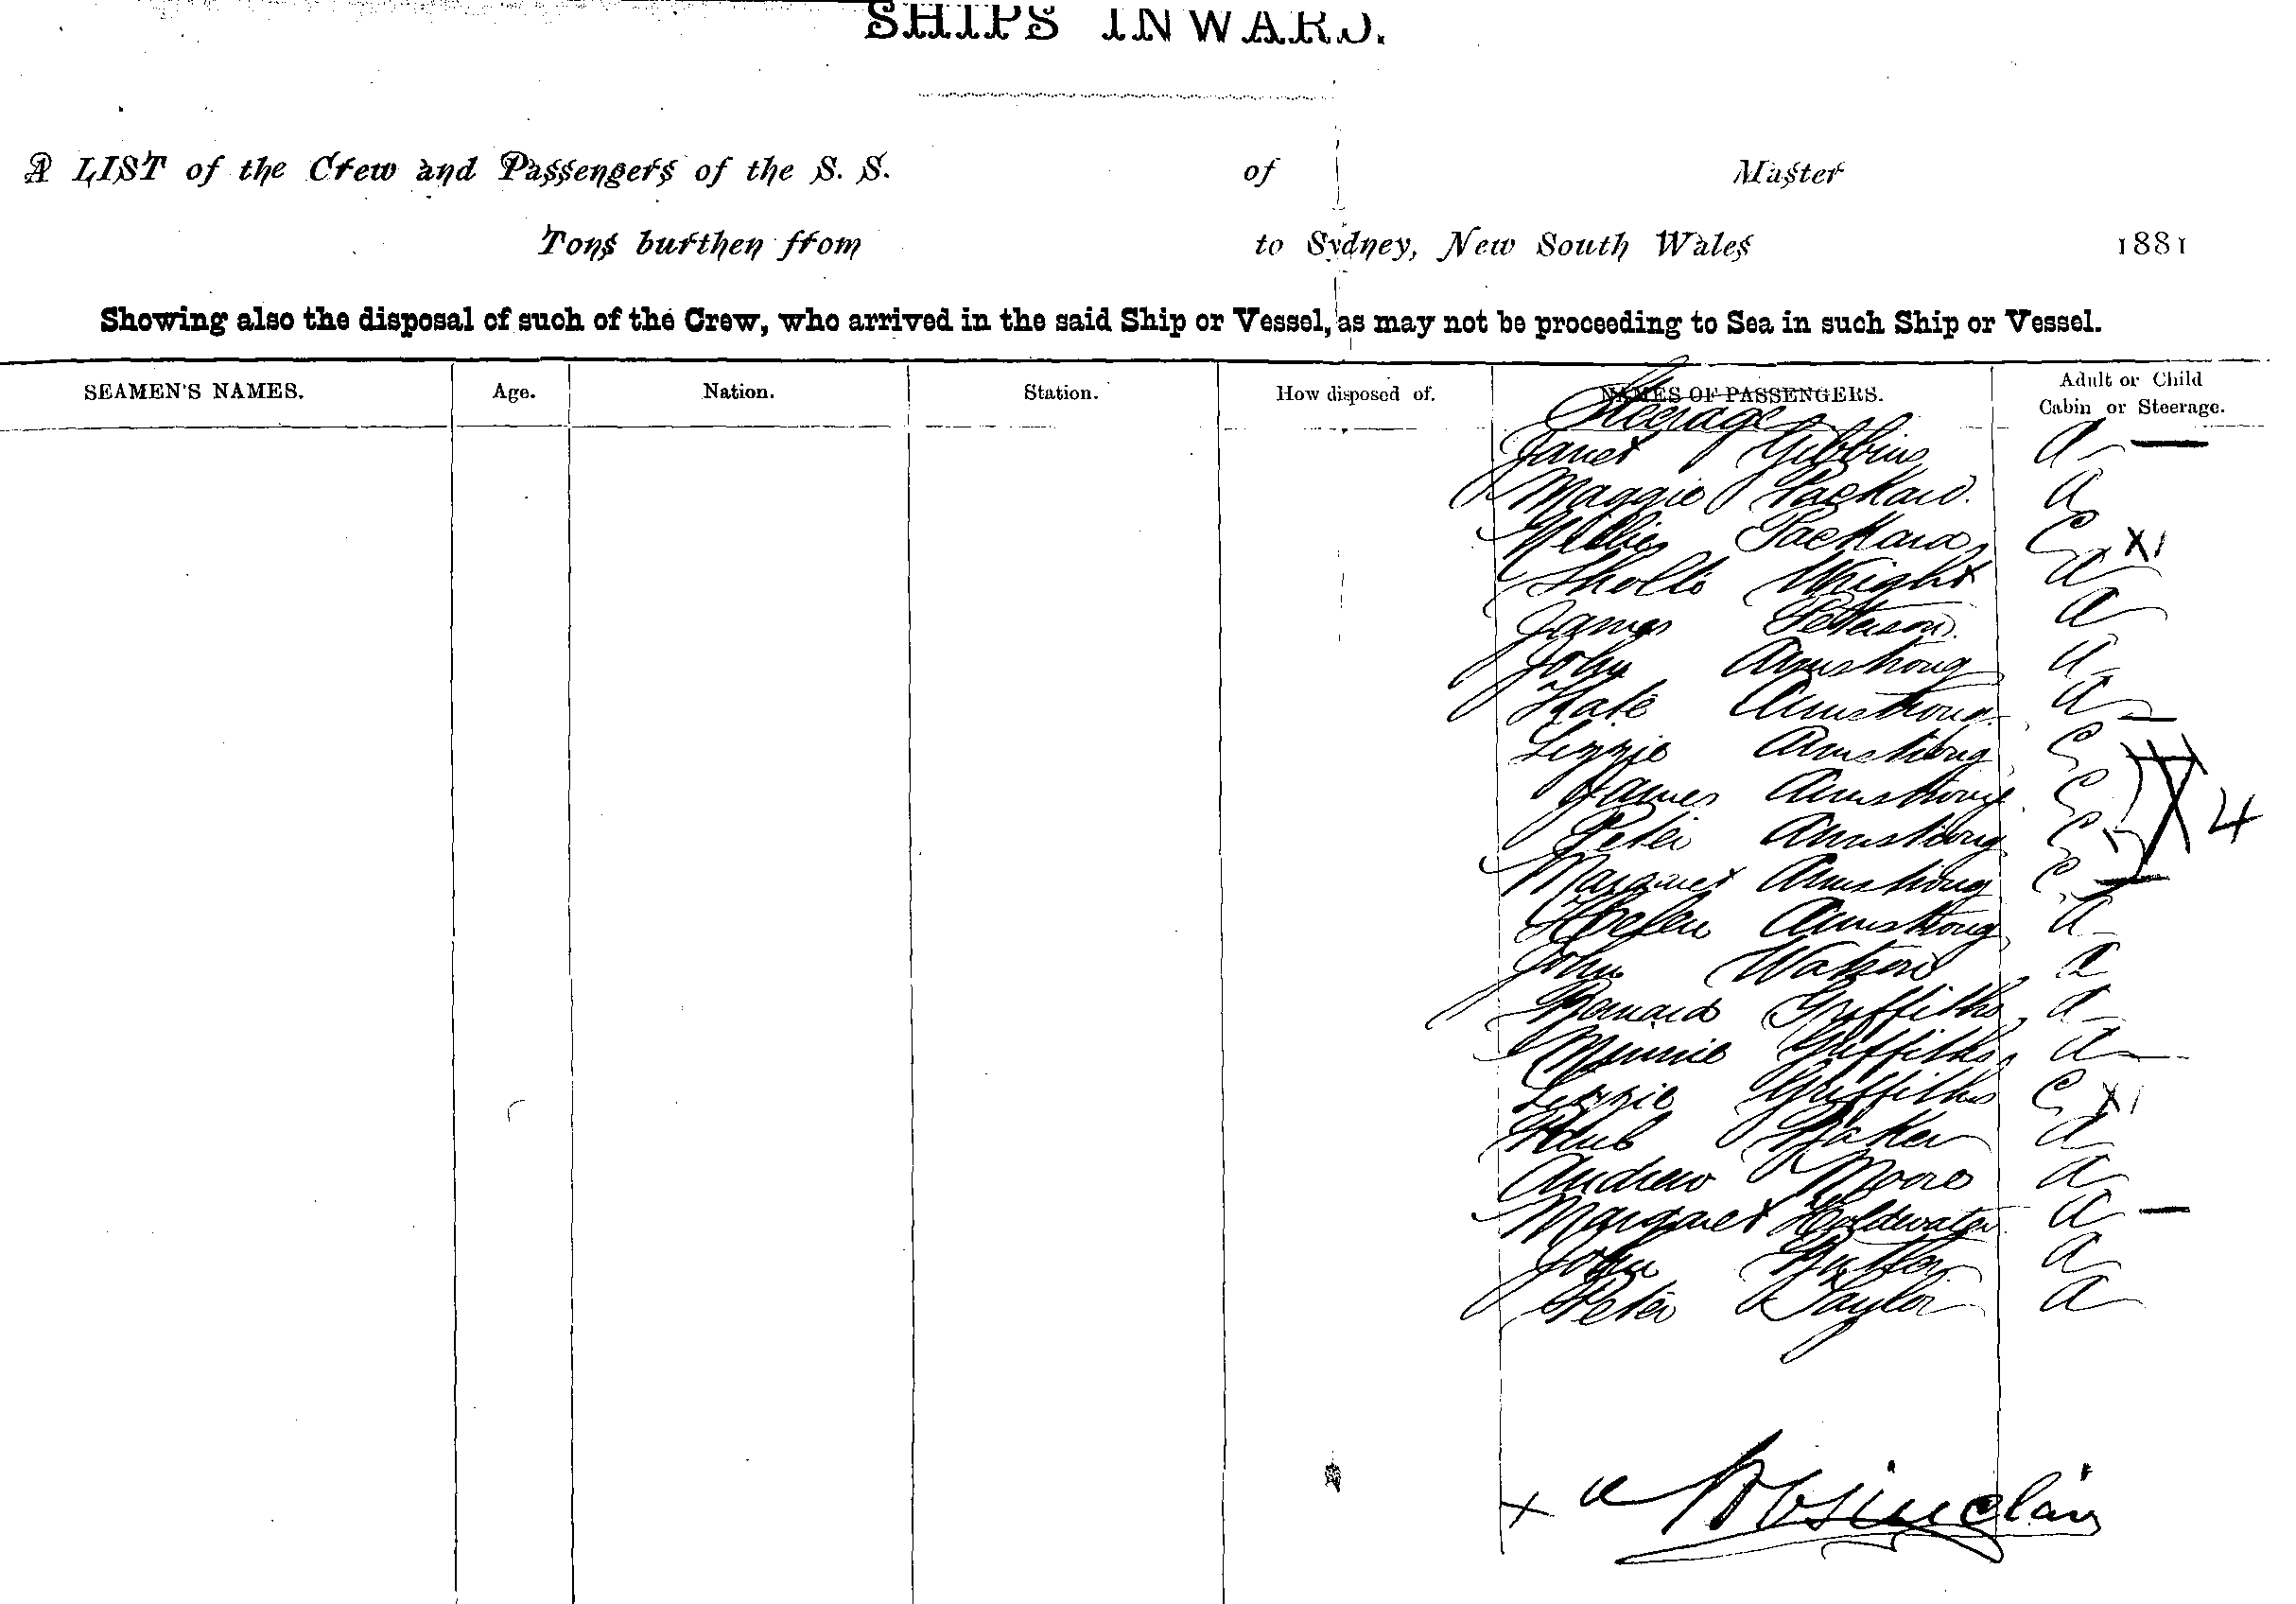 SHIPS INWARD.
A LIST of the Crew and Passengers of the S. S. of Master
Tons burthen from to Sydney, New South Wales 1881
Showing also the disposal of such of the Crew, who arrived in the said Ship or Vessel, as may not be proceeding to Sea in such Ship or Vessel.
SEAMEN'S NAMES. Age. Nation. Station. How disposed of. NAMES OF PASSENGERS. Adult or Child Cabin or Steerage.
Steerage
Janet Gibbins A
Maggie Packard. A
Willie Packard C X1
Sholto Wright A
James Petterson. A
John Armstrong A
Kate Armstrong A
Lizzie Armstrong C
James Armstrong C
Peter Armstrong C X4
Margaret Armstrong C
Helen Armstrong A
John Watson A
Bernard Griffiths A
Minnie Griffiths A
Lizzie Griffiths C X1
Baker A
Andrew Moore A
Margaret Coldwater A
John Butler A
Peter Taylor A
x Sinclair